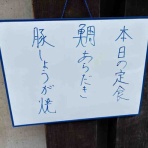 本日の定食
鯛あらだき
豚しょうが焼